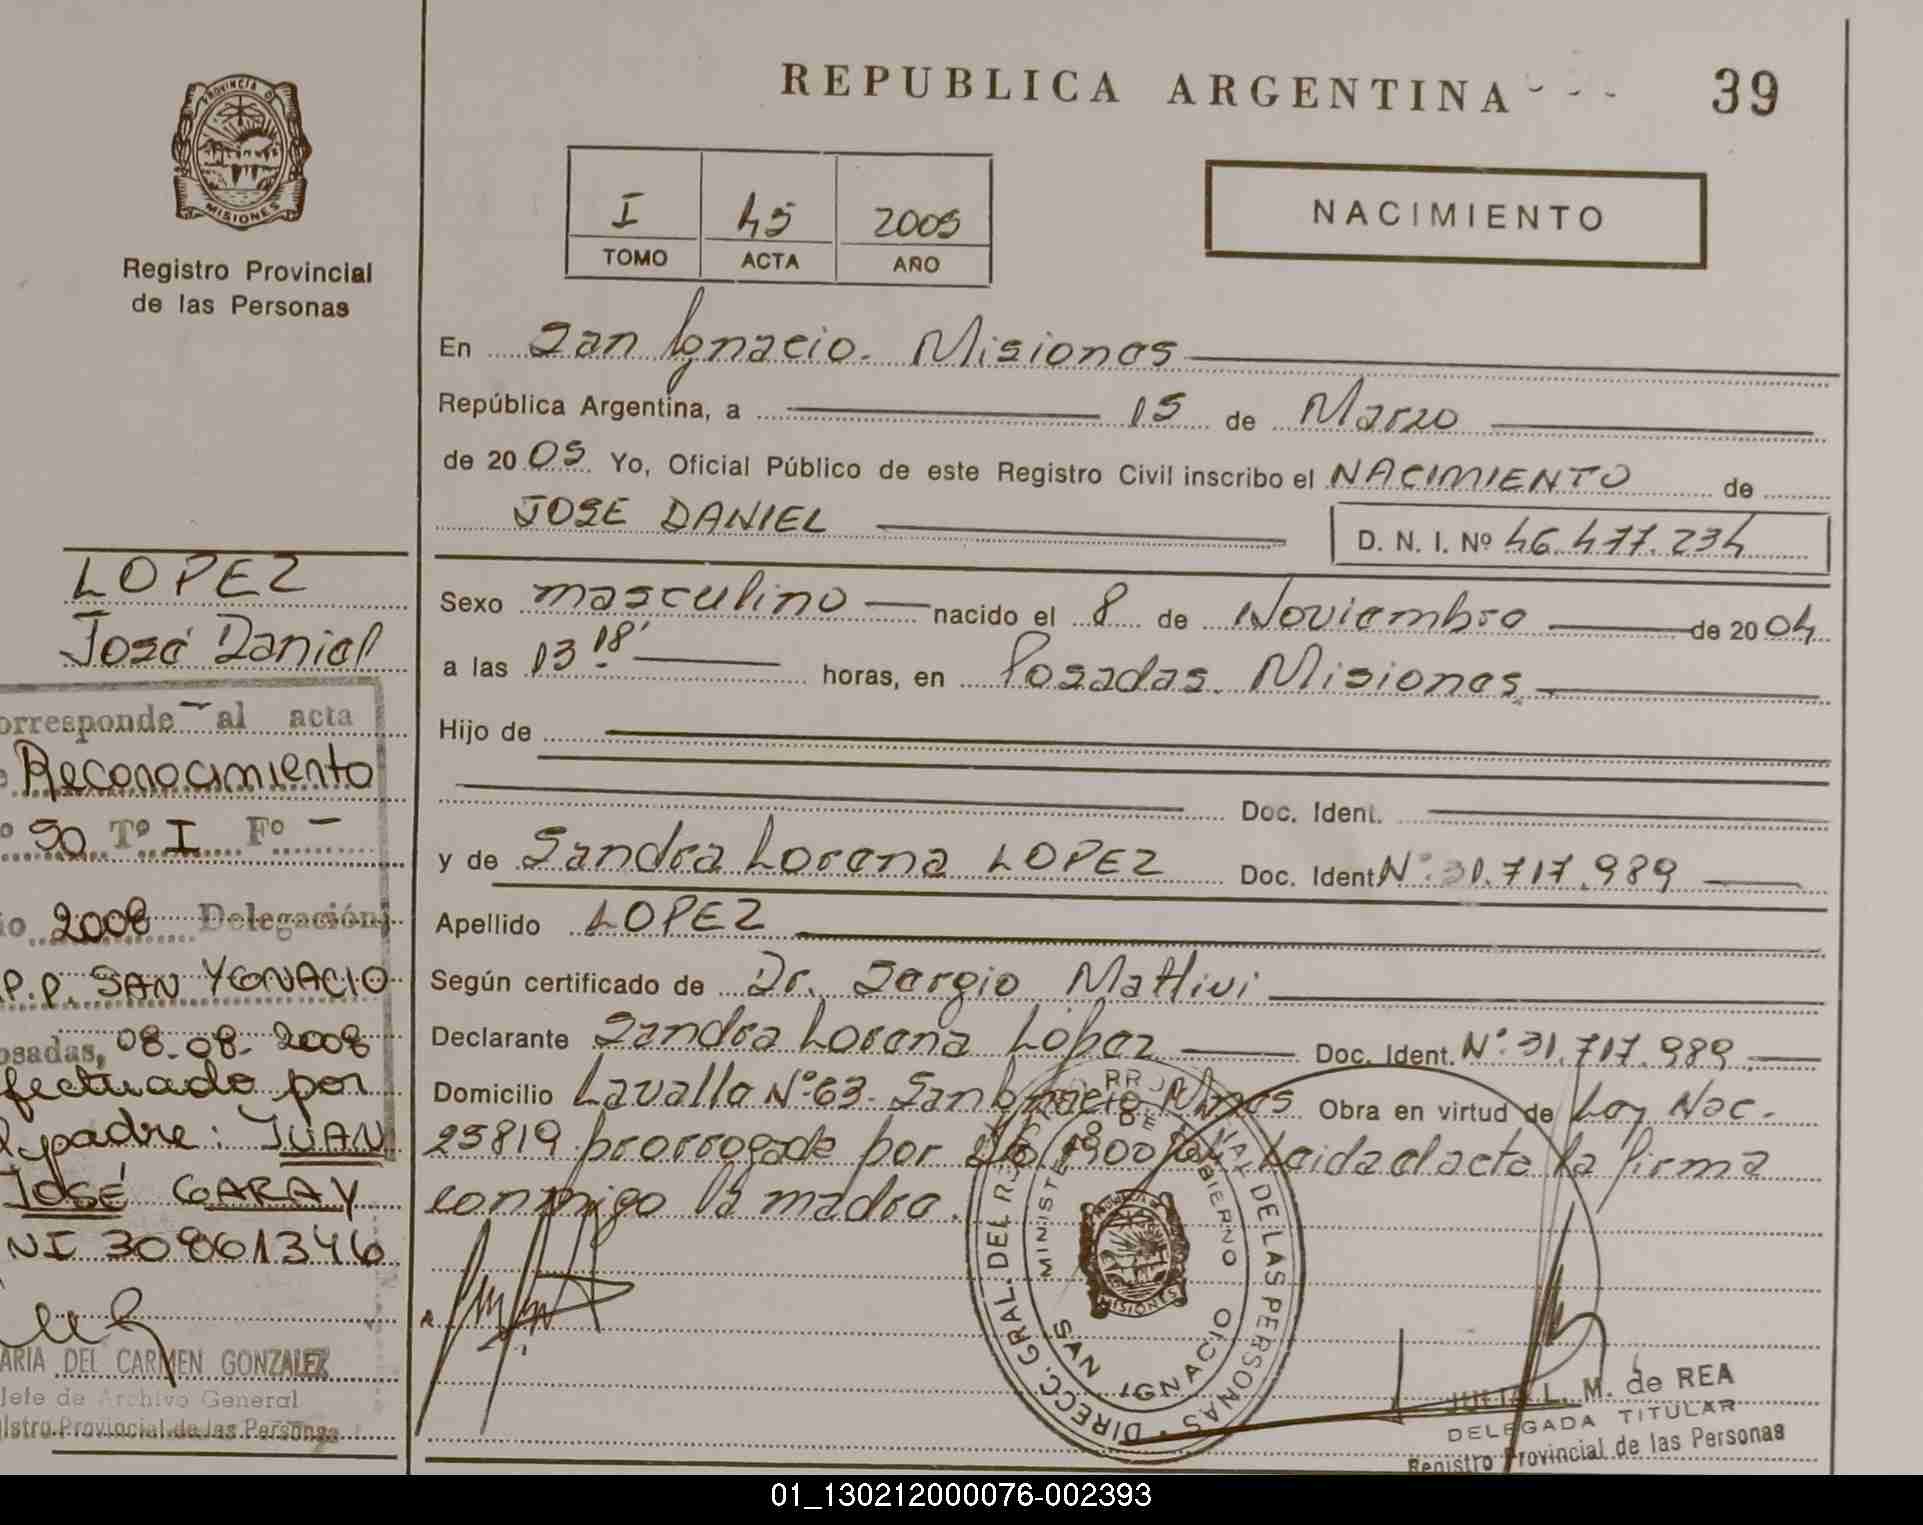 REPUBLICA ARGENTINA
39
PROVINCIA D
MISIONES
Registro Provincial
de las Personas
I 45 2005
TOMO ACTA AÑO
NACIMIENTO
En San Ignacio. Misiones
República Argentina, a 15 de Marzo
de 2005 Yo, Oficial Público de este Registro Civil inscribo el NACIMIENTO de
JOSE DANIEL
D. N. I. Nº 46.477.234
Sexo masculino nacido el 8 de Noviembre de 2004
a las 13 18' horas, en Posadas. Misiones
Hijo de
Doc. Ident.
y de Sandra Lorena LOPEZ Doc. Ident. Nº. 31.717.989
Apellido LOPEZ
Según certificado de Dr. Sergio Mattivi
Declarante Sandra Lorena López Doc. Ident. Nº. 31.717.989
Domicilio Lavalle Nº 63. San Ignacio Mnes Obra en virtud de Ley Nac.
25819 prorrogada por Dto 1900 Leida el acta la firma
conmigo la madre.
LOPEZ
José Daniel
orresponde al acta
Reconocimiento
º 50 Tº I Fº -
io 2008 Delegación
P.P. SAN YGNACIO
osadas, 08-08-2008
fectuado por
l padre: JUAN
JOSÉ GARAY
NI 30861346
ARIA DEL CARMEN GONZALEZ
Jefe de Archivo General
istro Provincial de las Personas
DIRECC. GRAL. DEL R IAL DE LAS PERSONAS
MINISTE DE BIERNO
SAN IGNACIO
MISIONES
JULIA L. M. de REA
DELEGADA TITULAR
Registro Provincial de las Personas
01_130212000076-002393